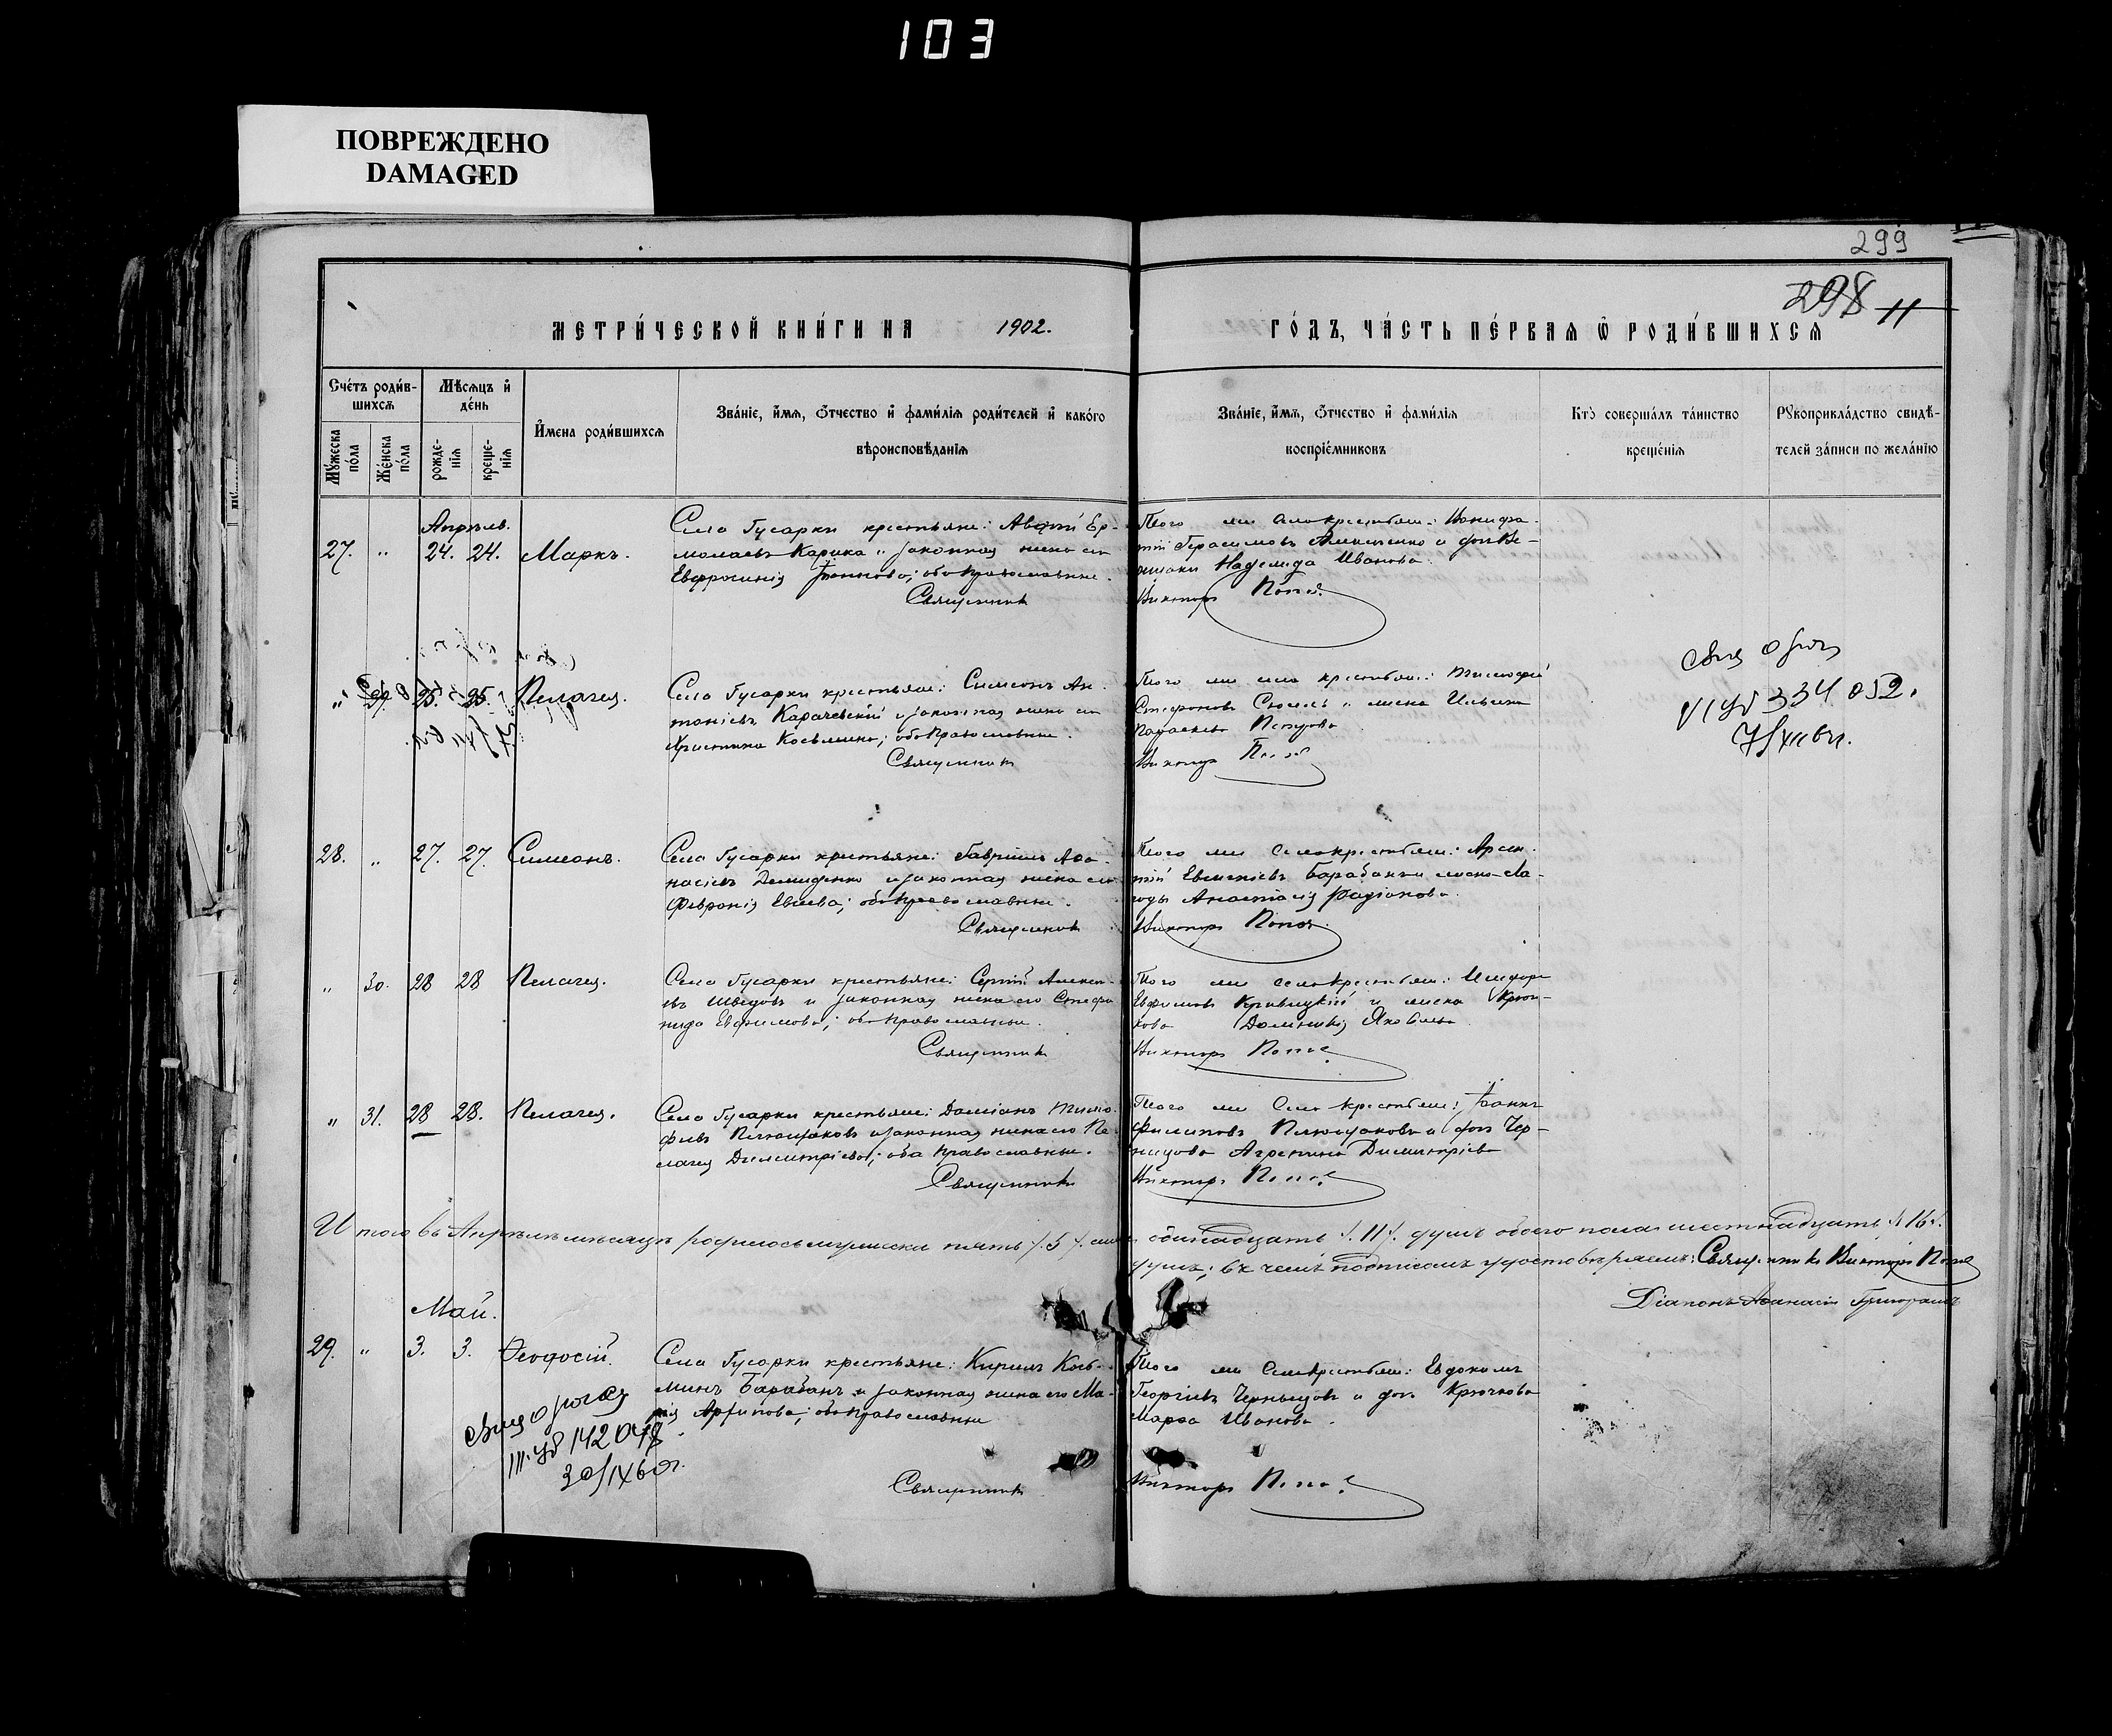 103
ПОВРЕЖДЕНО
DAMAGED
299
298 11
МЕТРИ́ЧЕСКОЙ КНИ́ГИ НА 1902. ГО́ДЪ, ЧА́СТЬ ПЕ́РВАЯ Ѡ РОДИ́ВШИХСЯ
Сче́тъ роди́в-
шихсѧ
Мѣ́сѧцъ и҆
де́нь
Мꙋ́жеска
по́ла
Же́нска
по́ла
рожде́-
нїѧ
креще́-
нїѧ
И҆мена роди́вшихсѧ
Зва́нїе, и҆́мѧ, Ѻ҆́тчество и҆ фами́лїѧ роди́телей и҆ како́го
вѣроисповѣ́данїѧ
Зва́нїе, и҆́мѧ, Ѻ҆́тчество и҆ фами́лїѧ
воспрїе́мниковъ
Кто̀ соверша́лъ та́инство
креще́нїѧ
Рꙋкоприкла́дство свидѣ́-
телей за́писи по жела́нїю
Апрѣль.
27. " 24. 24. Маркъ.
Села Гусарки крестьяне: Авфтій Ер-
молаевъ Карика и законная жена его
Евфросинія Іоаннова; оба православные.
Священникъ
Того же села крестьяне: Вонифа-
тій Герасимовъ и
Надежда Иванова.
Викторъ Поповъ
" 29. 25. 25. Пелагея.
Села Гусарки крестьяне: Симеонъ Ан-
тоніевъ Карачевскій и законная жена его
Христина Косьмина; оба православные.
Священникъ
Того же села крестьяне: Тимофей
Стефановъ и жена
Параскева Петрова
Викторъ Поповъ
334 052.
7/XII 61 г.
28. " 27. 27. Симеонъ.
Села Гусарки крестьяне: Гавріилъ Аѳа-
насіевъ Демиденко и законная жена его
Февронія Евсеева; оба православные.
Священникъ
Того же села крестьяне: Арсен-
тій Евменіевъ Барабанъ и жена Ла-
годы Анастасія Радіонова.
Викторъ Поповъ
" 30. 28 28 Пелагея.
Села Гусарки крестьяне: Сергій Алексе-
евъ Шведовъ и законная жена его Стефа
нида Евфимова; оба православные.
Священникъ
Того же села крестьяне: Никифоръ
Евфимовъ Кривицкій и жена Крюч-
кова Домникія Яковлева
Викторъ Поповъ
" 31. 28 28. Пелагея.
Села Гусарки крестьяне: Даміанъ Тимо-
феевъ и законная жена его Пе-
лагея Димитріева; оба православные.
Священникъ
Того же села крестьяне: Іоаннъ
Филиповъ и дочь Чер-
ницова Агрепина Димитріева
Викторъ Поповъ
Итого въ Апрѣлѣ мѣсяцѣ родилось мужеска пять /.5./ одинадцать /.11./. душъ обоего пола шестнадцать /.16./.
душъ; въ чемъ подписомъ удостовѣряемъ: Священникъ Викторъ Поповъ
Діаконъ Аѳанасій Григоровичъ
Май.
29. " 3. 3. Ѳеодосій.
Села Гусарки крестьяне: Кирилъ Кось-
минъ Барабанъ и законная жена его Ма-
рія Архипова; оба православные
Священникъ
Того же села крестьяне: Евдокимъ
Георгіевъ Чернышовъ и дочь Крючкова
Марѳа Иванова.
Викторъ Поповъ
142 048
30/IX 60 г.